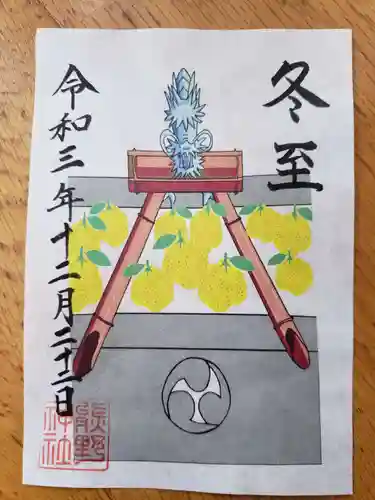 冬至
令和三年十二月二十二日
熊野
神社